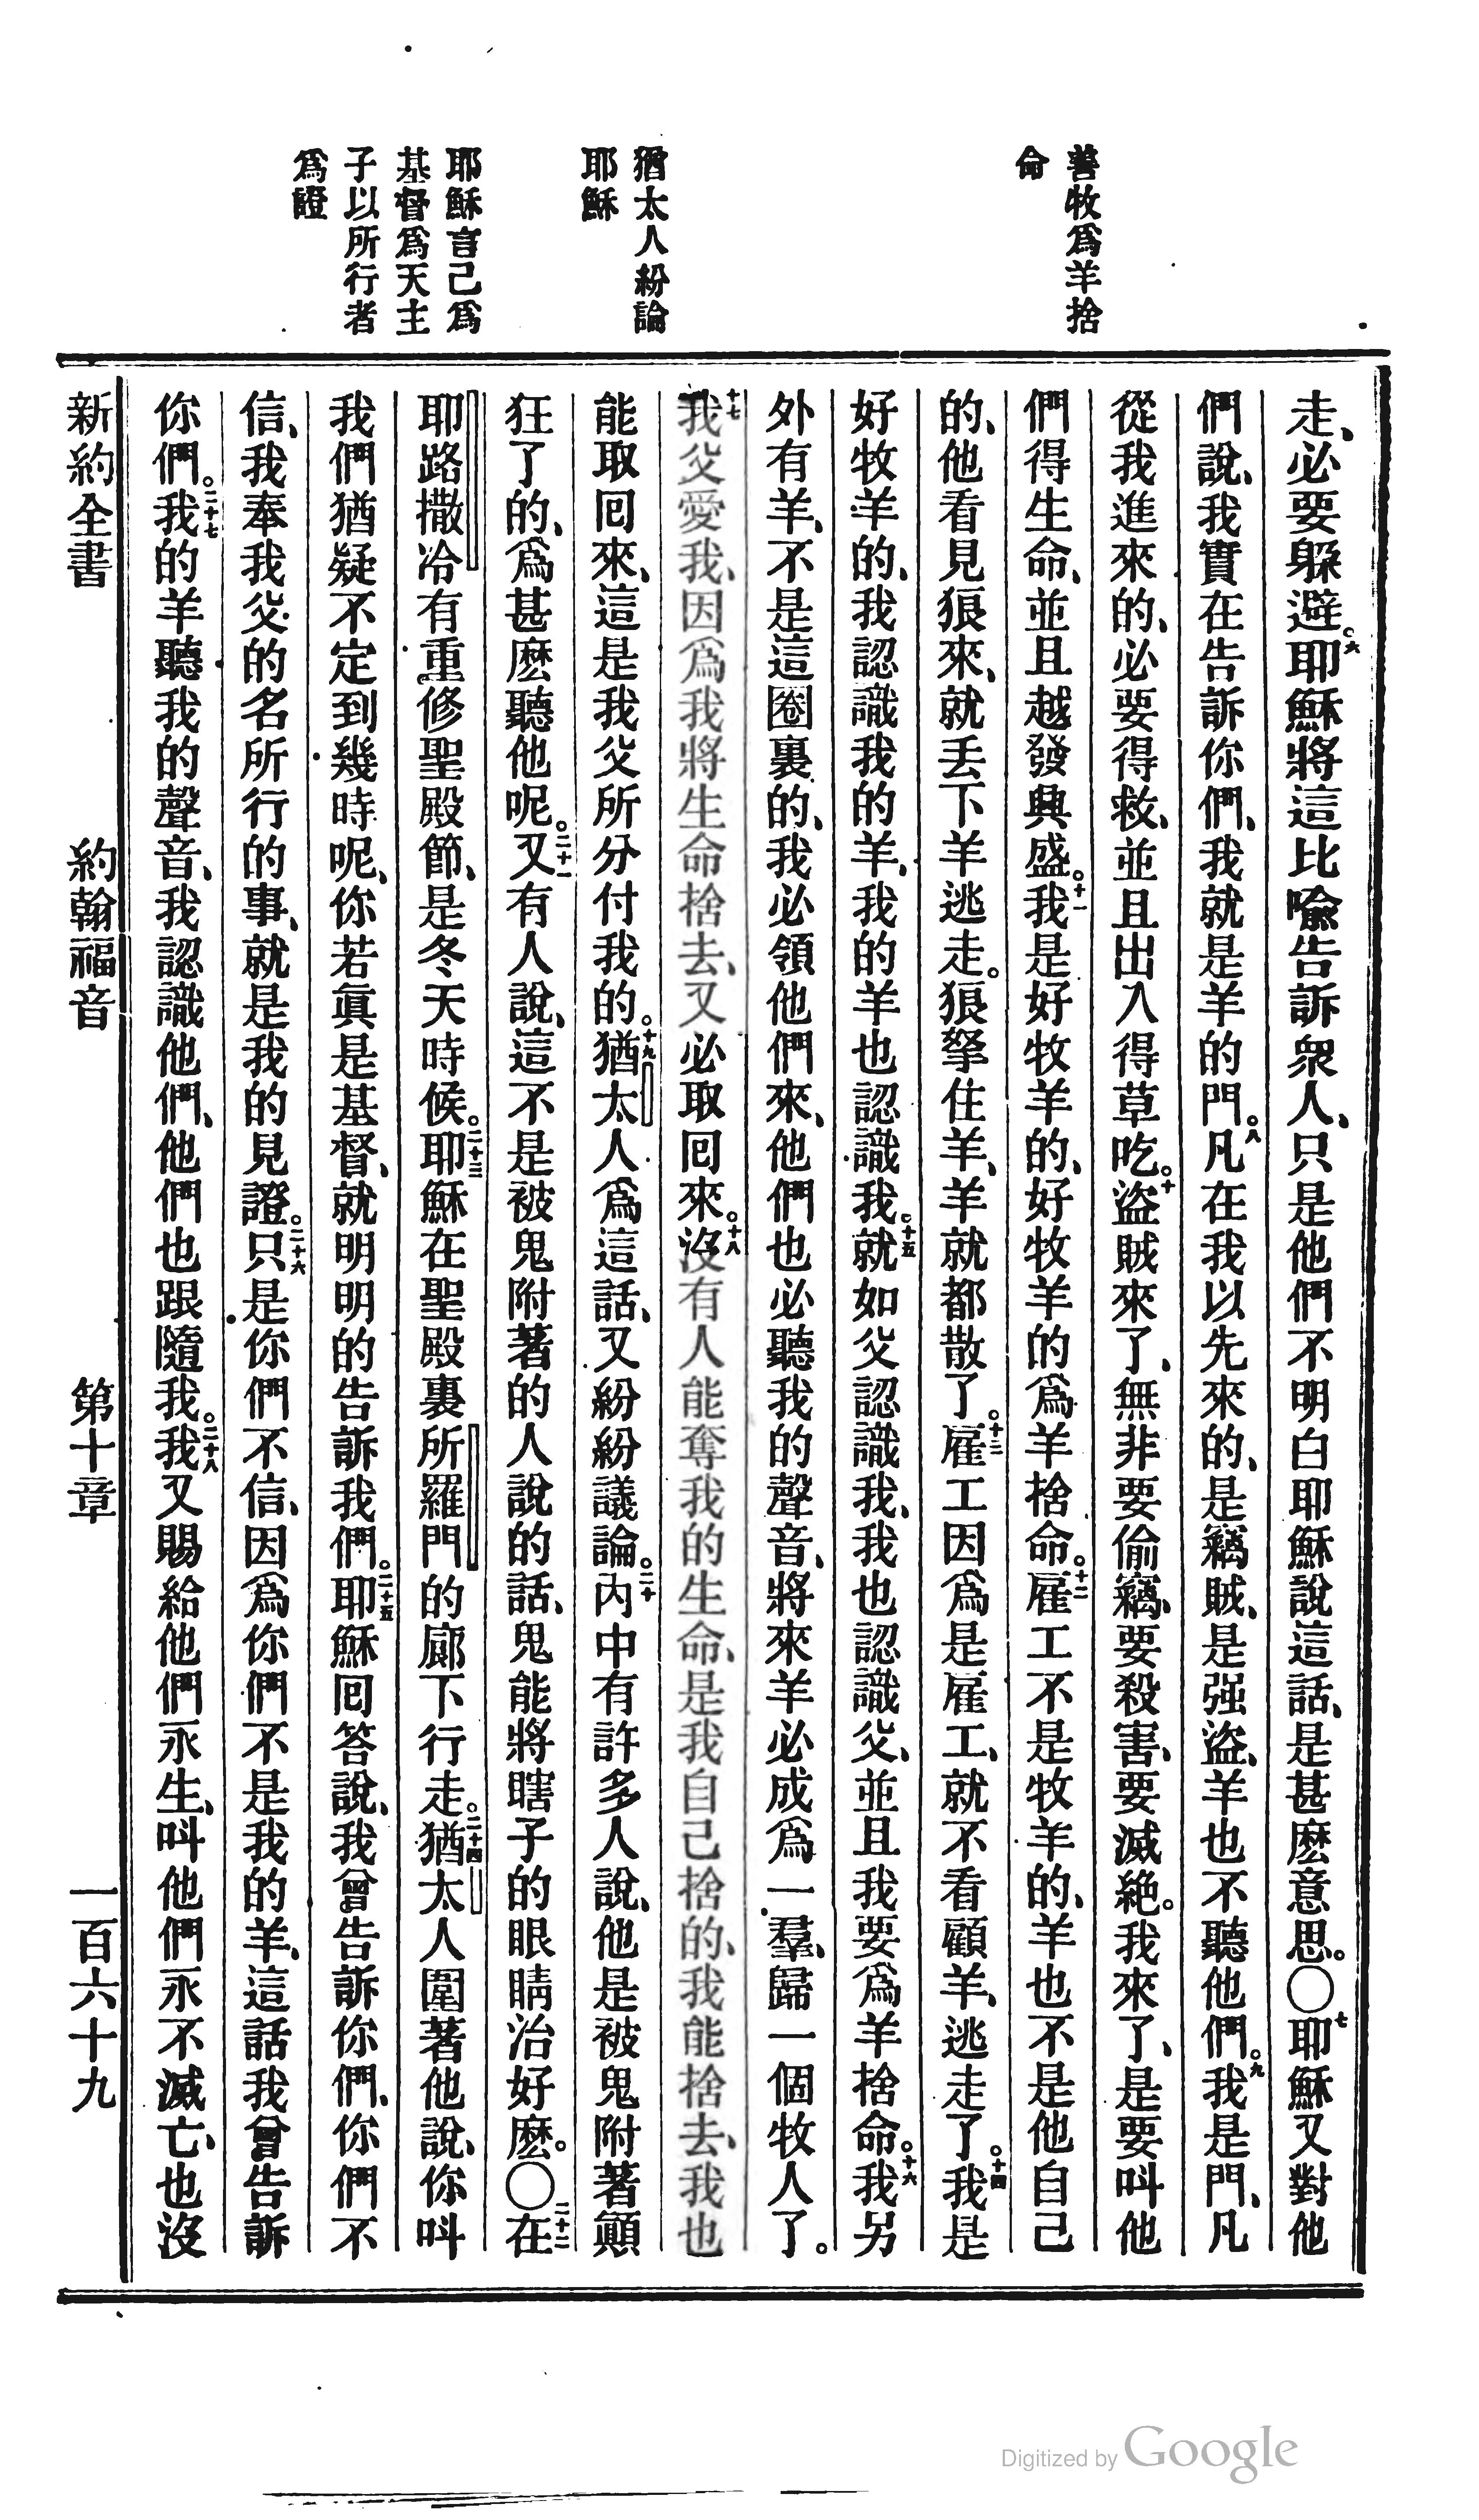 善牧爲羊捨
命
猶太人紛論
耶穌
耶穌言己爲
基督爲天主
子以所行者
爲證
走、必要躲避。六耶穌將這比喩告訴衆人、只是他們不明白耶穌說這話、是甚麽意思。〇七耶穌又對他
們說、我實在告訴你們、我就是羊的門。八凡在我以先來的、是竊賊、是强盜、羊也不聽他們。九我是門、凡
從我進來的、必要得救、並且出入得草吃。十盜賊來了、無非要偷竊、要殺害、要滅絶。我來了、是要叫他
們得生命、並且越發興盛。十一我是好牧羊的、好牧羊的爲羊捨命。十二雇工不是牧羊的、羊也不是他自己
的、他看見狼來、就丢下羊逃走。狼拏住羊、羊就都散了。十三雇工因爲是雇工、就不看顧羊、逃走了。十四我是
好牧羊的、我認識我的羊、我的羊也認識我。十五就如父認識我、我也認識父、並且我要爲羊捨命。十六我另
外有羊、不是這圈裏的、我必領他們來、他們也必聽我的聲音、將來羊必成爲一羣、歸一個牧人了。
十七我父愛我、因爲我將生命捨去、又必取回來。十八沒有人能奪我的生命、是我自己捨的、我能捨去、我也
能取回來、這是我父所分付我的。十九猶太人爲這話、又紛紛議論。二十內中有許多人說、他是被鬼附著顚
狂了的、爲甚麽聽他呢。二十一又有人說、這不是被鬼附著的人說的話、鬼能將瞎子的眼睛治好麽。〇二十二在
耶路撒冷有重修聖殿節、是冬天時候。二十三耶穌在聖殿裏所羅門的廊下行走。二十四猶太人圍著他說、你叫
我們猶疑不定到幾時呢、你若眞是基督、就明明的告訴我們。二十五耶穌回答說、我曾告訴你們、你們不
信、我奉我父的名所行的事、就是我的見證。二十六只是你們不信、因爲你們不是我的羊、這話我曾告訴
你們。二十七我的羊聽我的聲音、我認識他們、他們也跟隨我。二十八我又賜給他們永生、叫他們永不滅亡、也沒
新約全書　約翰福音　第十章　一百六十九
Digitized by Google